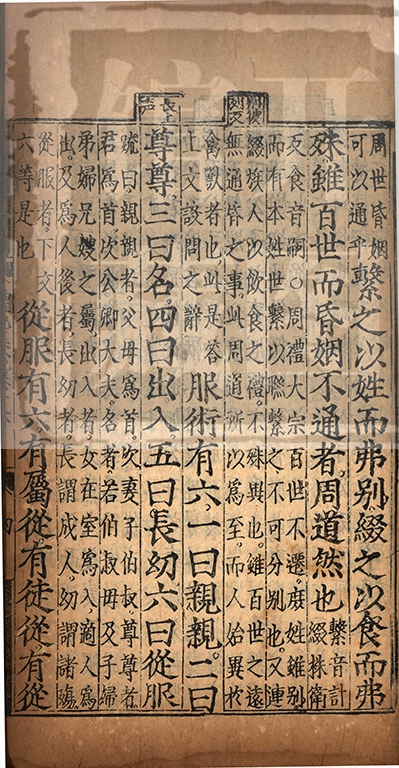 周世昏姻
可以通乎
繫之以姓而弗別綴之以食而弗
殊雖百世而昏姻不通者周道然也
繫音計
綴株衛
別彼
列反
反食音嗣○周禮大宗百世不遷庶姓雖別
而有本姓世繫以聯繫之不可分別也又連
綴族人以飲食之禮不殊異也雖百世之遠
無通昏之事此周道所以為至而人始異於
禽獸者也此是荅
上文設問之辭
服術有六一曰親親二曰
長上
声
尊尊三曰名四曰出入五曰長幼六曰從服
疏曰親親者父母為首次妻子伯叔尊尊者
君為首次公卿大夫名者若伯叔母及子婦
弟婦兄嫂之屬出入者女在室為入適人為
出及為人後者長幼者長謂成人幼謂諸殤
從服者下文
六等是也
從服有六有屬從有徒從有從